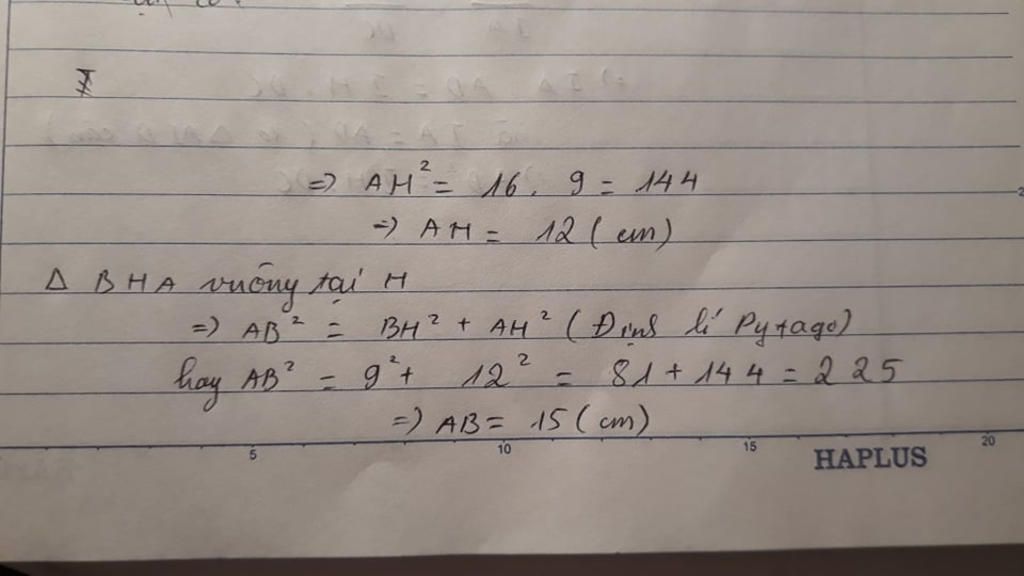 => AH² = 16. 9 = 144
=> AH = 12 (cm)
Δ BHA vuông tại H
=> AB² = BH² + AH² (Định lí Pytago)
hay AB² = 9² + 12² = 81 + 144 = 225
=> AB = 15 (cm)
5 10 15 20
HAPLUS